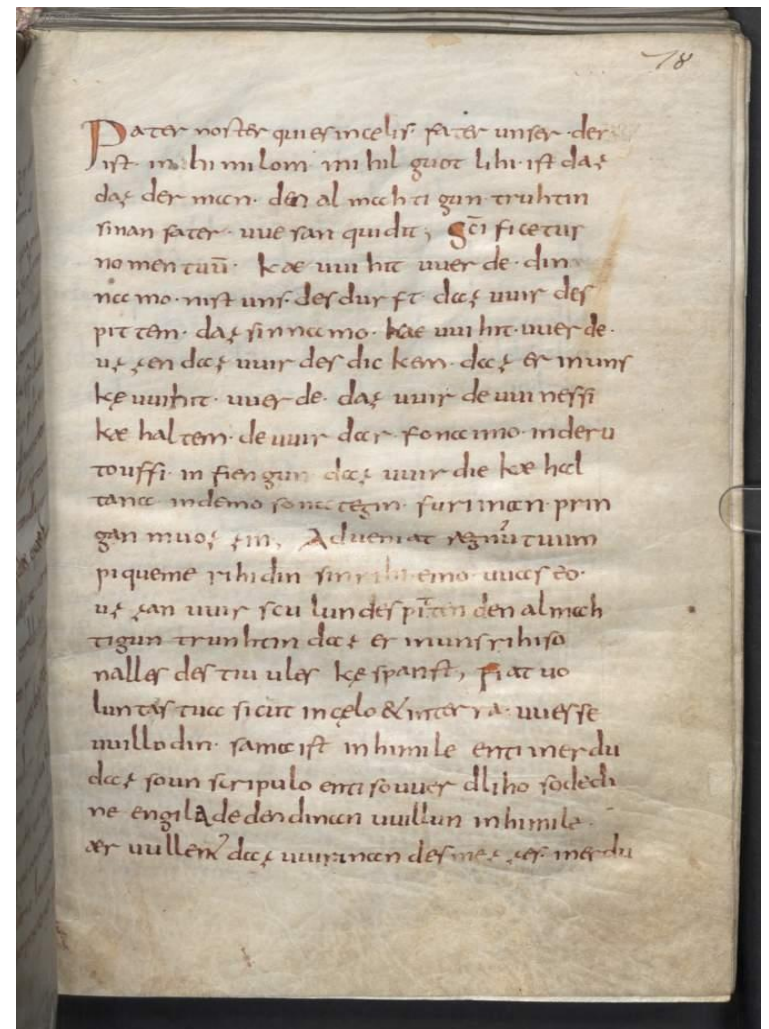 78
Pater noster qui es in celis· fater unser· der
ist· in hi mi lom· mi hil guot lihi· ist daz
daz der man· den al mah ti gun· truhtin
sinan fater· uue san quidit; Sc̄i ficetur
nomen tuū· kæ uui hit uuer de· din
na mo· nist uns· des durft· daz uuir des
pit tem· daz sin na mo· kæ uui hit· uuer de·
uz zen daz uuir des dic kem· daz er in uns
kę uuihit· uuer de· daz uuir de uui nessi
kæ hal tem· de uuir dar· fona imo· in deru
touffi· in fien gun daz uuir die kæ hal
tana· in demo sona tagin· furi inan· prin
gan muoz zin; Adveniat regnū tuum
pi queme rihi din sin emo· uuas eo·
uz zan uuir scu lun des pitten den almah
tigun truhtin daz er in uns rihiso
nalles des tiu ules kę spanst; Fiat vo
luntas tua sicut in cęlo & in ter ra· uuesse
uuillo din· sama ist in himile enti in erdu
daz so un scripulo enti so uuer dliho so de di
ne engila de den dinan uuillun in himile·
ær uullent daz uuir inan des mez zes· in erdu